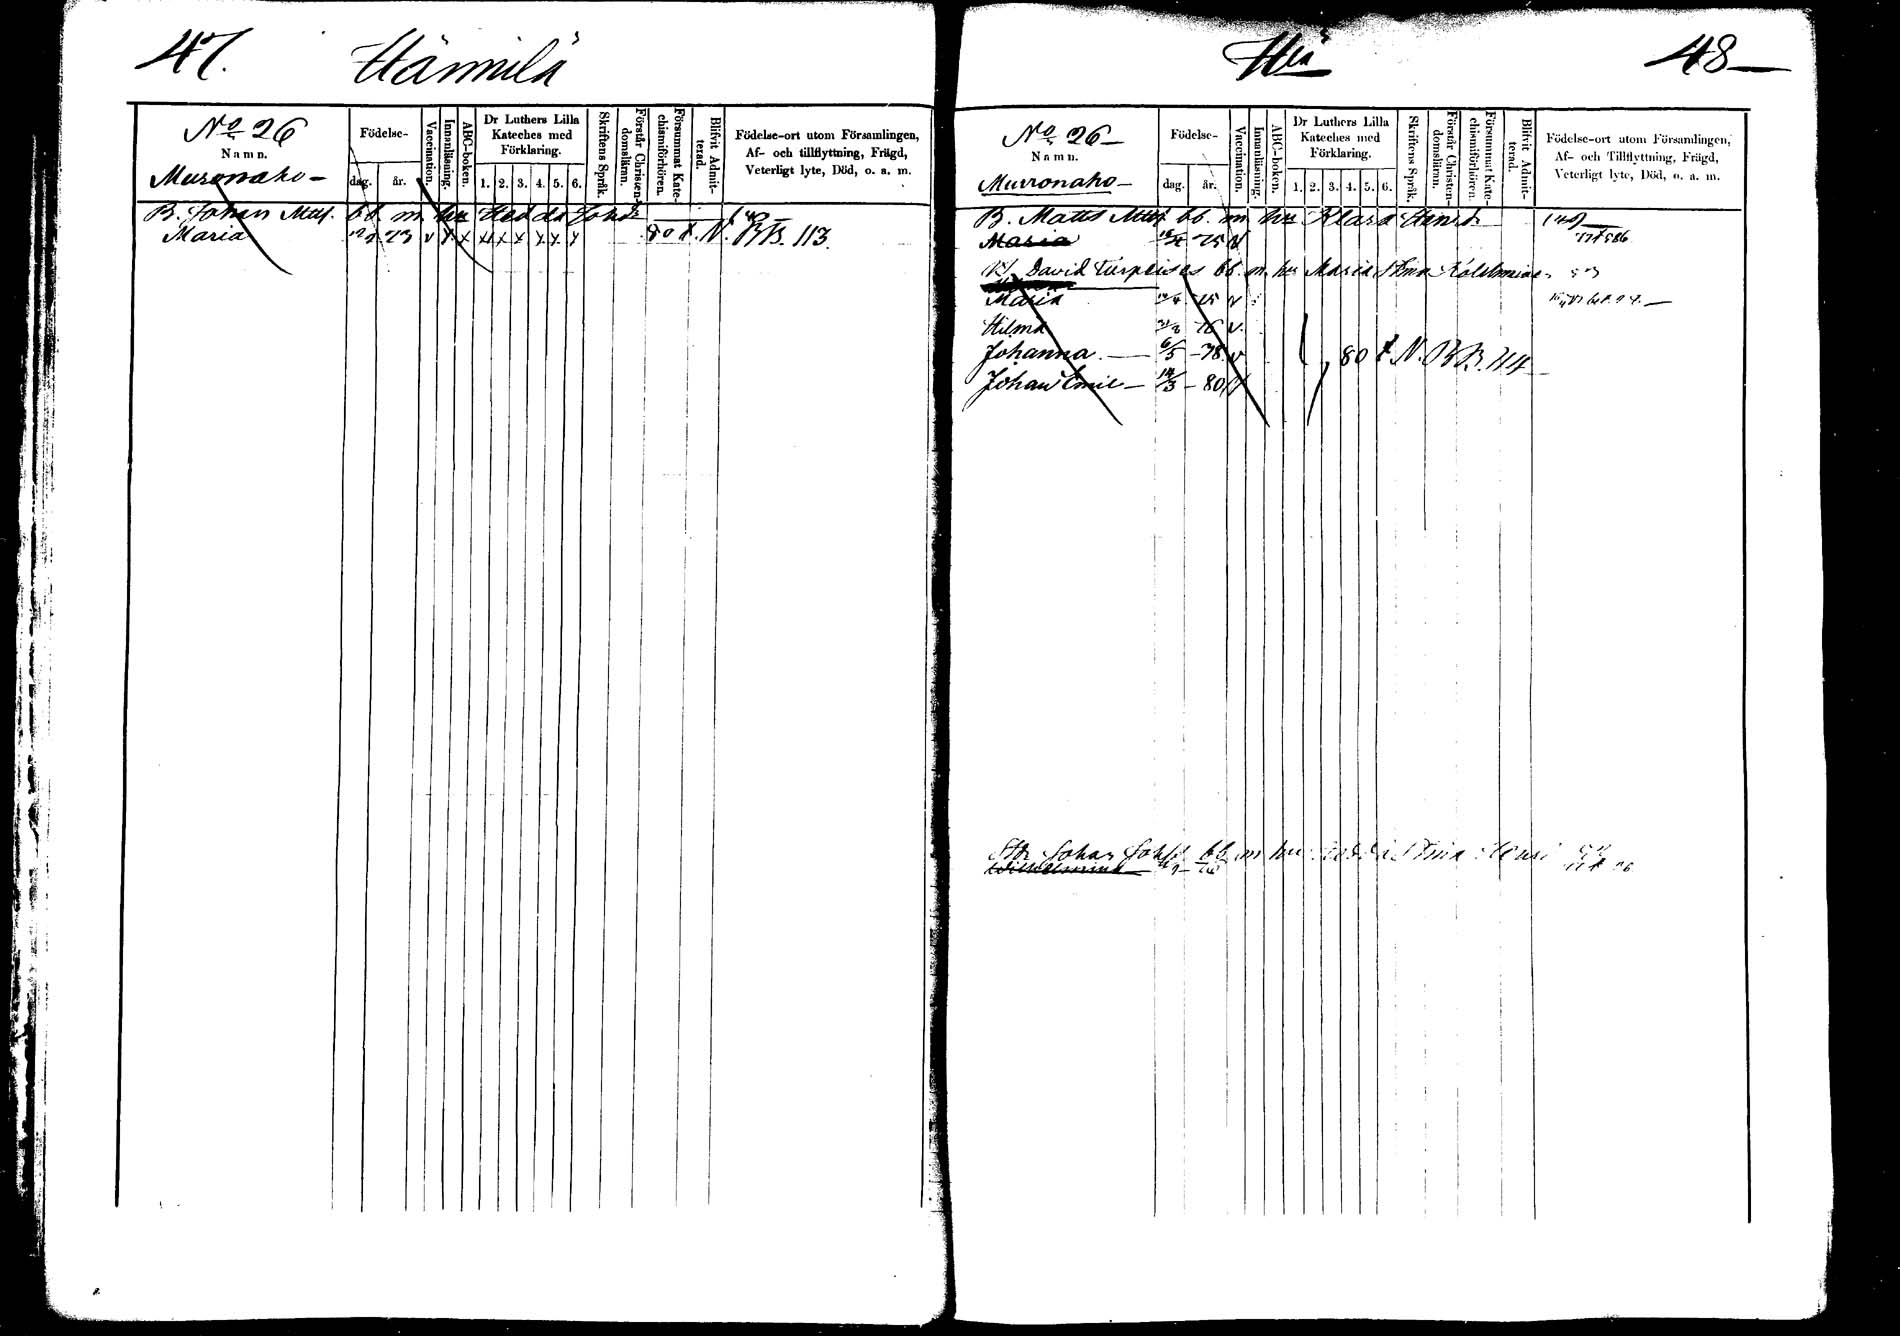 47. Hännilä
No 26
Namn.
Muronaho -
Födelse-
dag. år.
Vaccination.
Innanläsning.
ABC-boken.
Dr Luthers Lilla
Kateches med
Förklaring.
1. 2. 3. 4. 5. 6.
Skriftens Språk.
Förstår Christen-
domslärnn.
Försummat Kate-
chismiförhören.
Blifvit Admit-
terad.
Födelse-ort utom Församlingen,
Af- och tillflyttning, Frägd,
Veterligt lyte, Död, o. a. m.
B. Johan Matts. bb. m. hu Hedda Johd
Maria 73 v x x x x x x x x 80 f. N. BB. 113.
Hlä 48
No 26
Namn.
Murronaho
Födelse-
dag. år.
Vaccination.
Innanläsning.
ABC-boken.
Dr Luthers Lilla
Kateches med
Förklaring.
1. 2. 3. 4. 5. 6.
Skriftens Språk.
Förstår Christen-
domslärnn.
Försummat Kate-
chismiförhören.
Blifvit Admit-
terad.
Födelse-ort utom Församlingen,
Af- och Tillflyttning, Frägd,
Veterligt lyte, Död, o. a. m.
B. Matts bb. m. hu Klara Henrd.
Maria 75 v
David Turpeises bb. m. hu Maria Stina
Maria 75 v
Hilma 76 v
Johanna 6/5 - 78 v 80 f N. BB. 114
Johan Emil - 14/3 - 80 v
Johan Johsd bb m hu Hedda Stina Henri
Wilhelmina